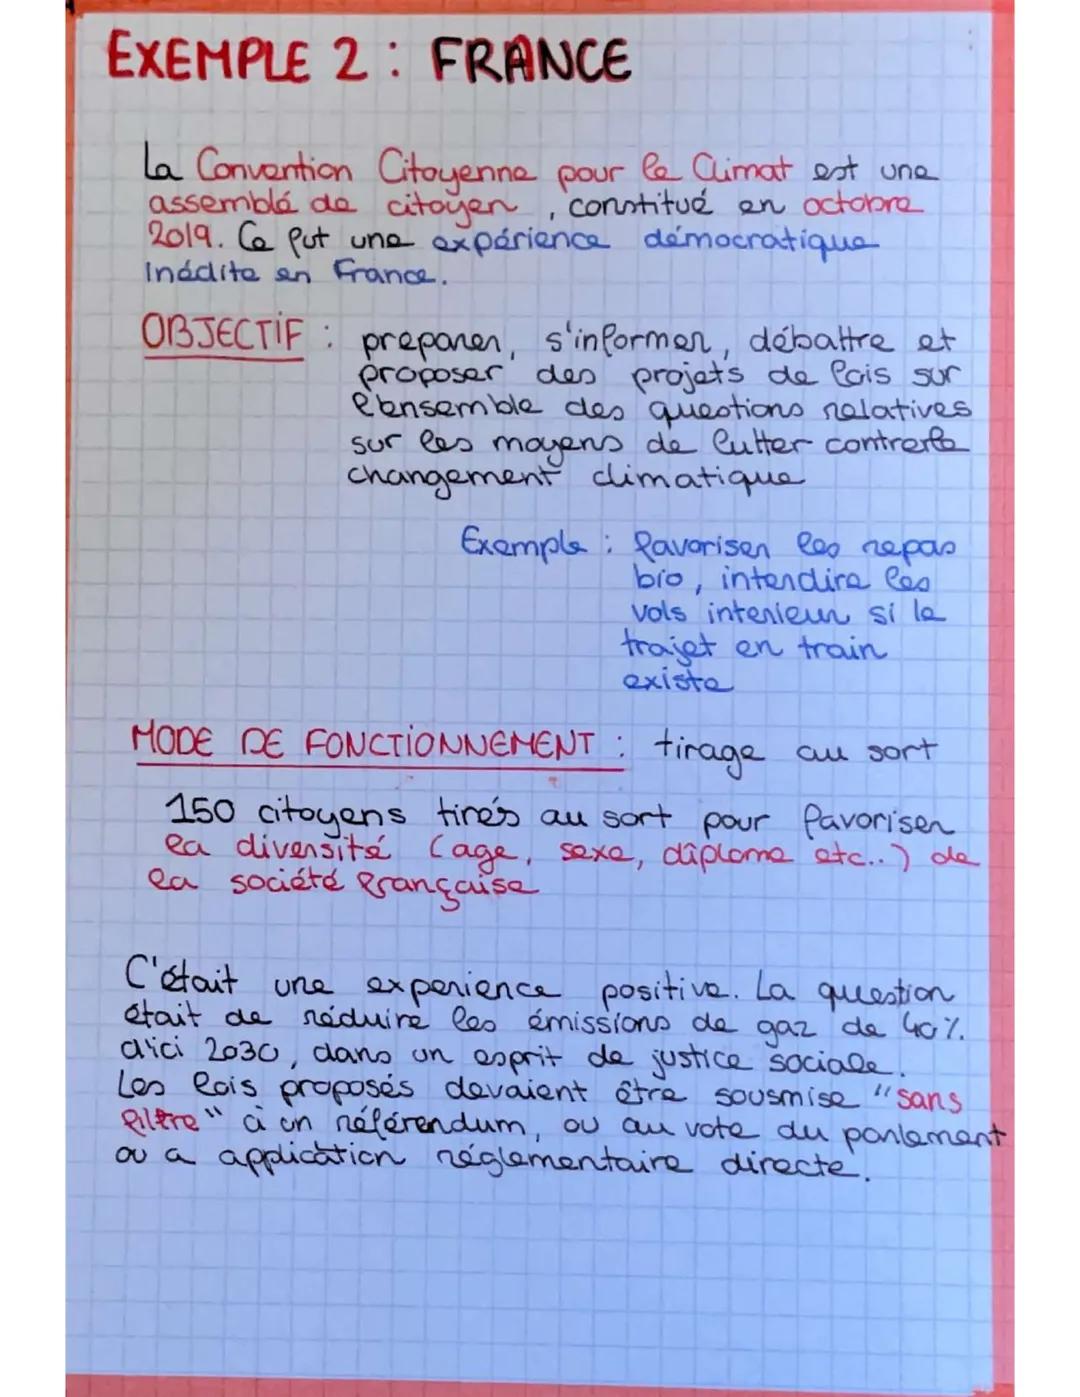 EXEMPLE 2 : FRANCE
La Convention Citoyenne pour le Climat est une
assemblé de citoyen , constitué en octobre
2019. Ce fut une expérience démocratique
inédite en France.
OBJECTIF : preparer, s'informer, débattre et
proposer des projets de lois sur
l'ensemble des questions relatives
sur les moyens de lutter contre le
changement climatique
Exemple : favoriser les repas
bio, interdire les
vols interieur si le
trajet en train
existe
MODE DE FONCTIONNEMENT : tirage au sort
150 citoyens tirés au sort pour favoriser
la diversité (age, sexe, diplome etc..) de
la société française
C'était une experience positive. La question
était de réduire les émissions de gaz de 40%
d'ici 2030, dans un esprit de justice sociale.
Les lois proposés devaient être sousmise "sans
filtre" à un référendum, ou au vote du parlement
ou a application réglementaire directe.